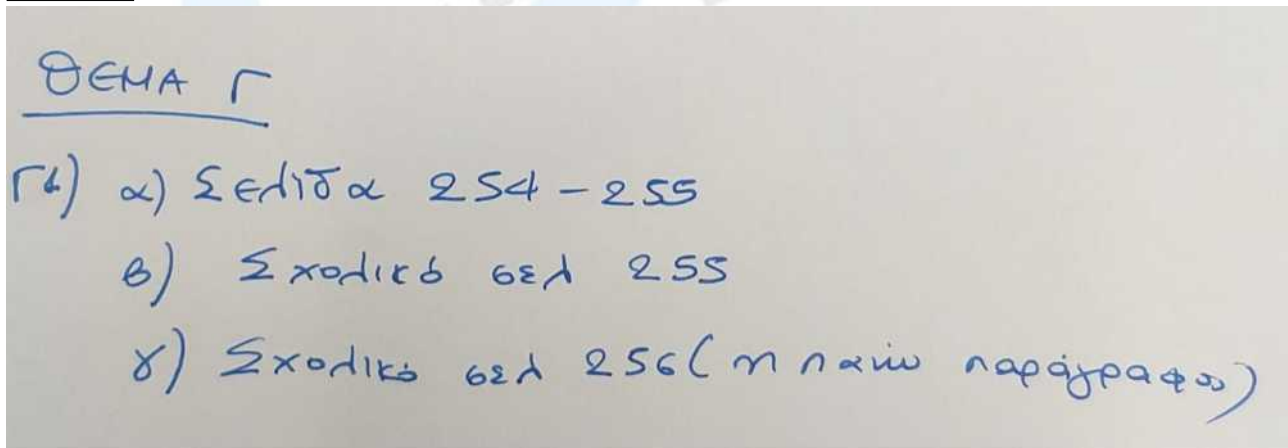 ΘΕΜΑ Γ
Γ1) α) Σελίδα 254 - 255
β) Σχολικό σελ 255
γ) Σχολικό σελ 256 (η πάνω παράγραφος)